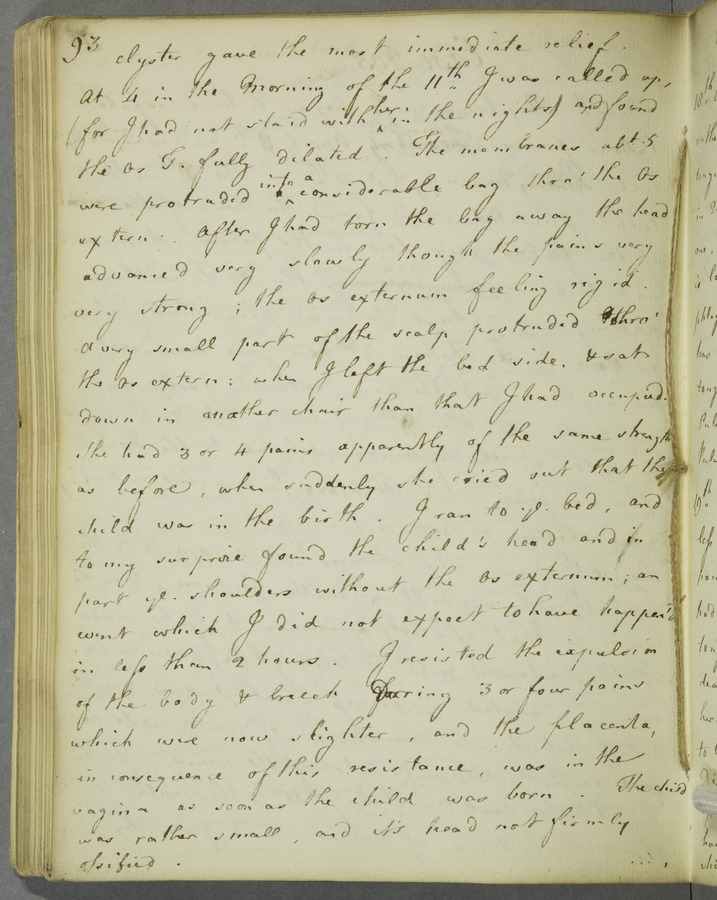 93
clyster gave the most immediate relief.
At 4 in the Morning of the 11th I was called up,
(for I had not staid with her in the nights) and found
the os G. fully dilated. The membranes abt. 5
were protruded into a considerable bag thro' the os
extern: After I had torn the bag away the head
advanced very slowly though the pains very
very strong; the os externum feeling rigid.
A very small part of the scalp protruded thro'
the os extern: when I left the bed side, & sat
down in another chair than that I had occupied.
She had 3 or 4 pains apparently of the same strength
as before, when suddenly she cried out that the
child was in the birth. I ran to ye. bed, and
to my surprise found the child's head and in
part ye. shoulders without the os externum; an
event which I did not expect to have happen'd
in less than 2 hours. I resisted the expulsion
of the body & breech During 3 or four pains
which were now slighter, and the placenta,
in consequence of this resistance, was in the
vagina as soon as the child was born. The child
was rather small, and it's head not firmly
ossified.